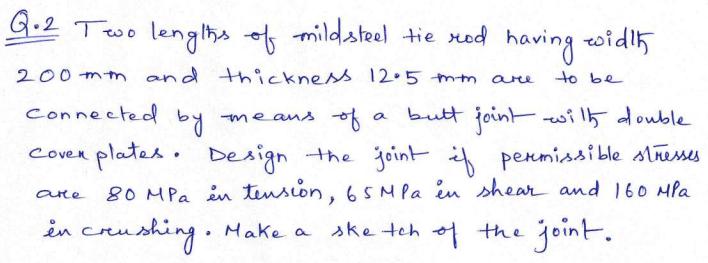 Q.2 Two lengths of mild steel tie rod having width
200 mm and thickness 12.5 mm are to be
connected by means of a butt joint with double
cover plates. Design the joint if permissible stresses
are 80 MPa in tension, 65 MPa in shear and 160 MPa
in crushing. Make a sketch of the joint.